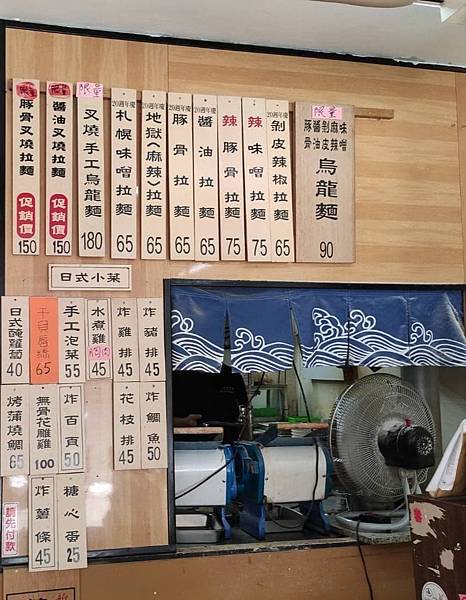 限量
豚骨叉燒拉麵
促銷價
150
限量
醬油叉燒拉麵
促銷價
150
限量
叉燒手工烏龍麵
180
20週年慶
札幌味噌拉麵
65
20週年慶
地獄(麻辣)拉麵
65
20週年慶
豚骨拉麵
65
20週年慶
醬油拉麵
65
辣豚骨拉麵
75
辣味噌拉麵
75
20週年慶
剝皮辣椒拉麵
65
限量
豚醬剝麻味
骨油皮辣噌
烏龍麵
90
日式小菜
日式醃蘿蔔
40
干貝唇絲
65
手工泡菜
55
水煮雞
45
炸雞排
45
炸豬排
45
烤蒲燒鯛
65
無骨花雕雞
100
炸百頁
50
花枝排
45
炸鯛魚
50
請先付款
炸薯條
45
糖心蛋
25